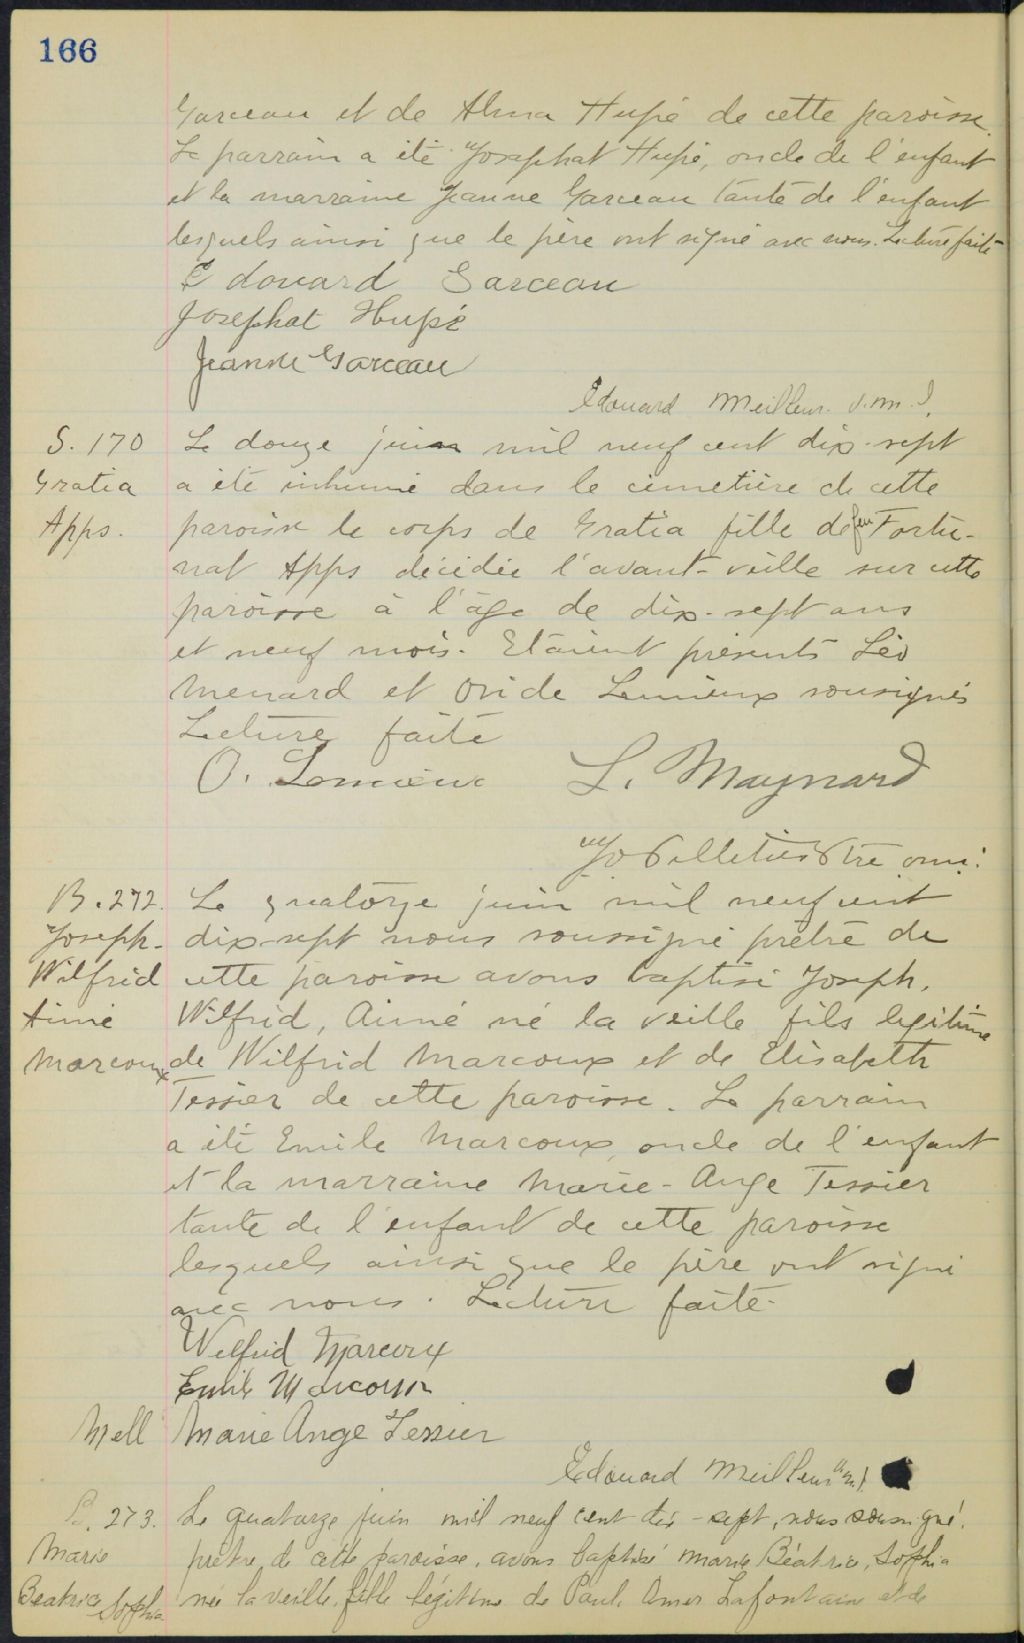 166
Garceau et de Alma Hupé de cette paroisse.
Le parrain a été Josephat Hupé, oncle de l'enfant
et la marraine Jeanne Garceau tante de l'enfant
lesquels ainsi que le père ont signé avec nous. Lecture faite
Edouard Garceau
Josephat Hupé
Jeanne Garceau
Edouard Meilleur
S. 170
Gratia
Apps.
Le douze juin mil neuf cent dix-sept
a été inhumé dans le cimetière de cette
paroisse le corps de Gratia fille de feu Fortu-
nat Apps décédée l'avant-veille sur cette
paroisse à l'âge de dix-sept ans
et neuf mois. Etaient présents Léo
Menard et Ovide Lemieux soussignés
Lecture faite
O. Lemieux L. Maynard
Pelletier Ptre
B. 272.
Joseph-
Wilfrid
Aimé
Marcoux
Le quatorze juin mil neuf cent
dix-sept nous soussigné prêtre de
cette paroisse avons baptisé Joseph,
Wilfrid, Aimé né la veille fils légitime
de Wilfrid Marcoux et de Elisabeth
Tessier de cette paroisse. Le parrain
a été Emile Marcoux, oncle de l'enfant
et la marraine Marie-Ange Tessier
tante de l'enfant de cette paroisse
lesquels ainsi que le père ont signé
avec nous. Lecture faite.
Wilfrid Marcoux
Emile Marcoux
Mell Marie Ange Tessier
Edouard Meilleur
B. 273.
Marie
Beatrice Sophia
Le quatorze juin mil neuf cent dix-sept, nous soussigné,
prêtre de cette paroisse, avons baptisé Marie, Béatrice, Sophia
née la veille, fille légitime de Paul, Omer Lafontaine et de